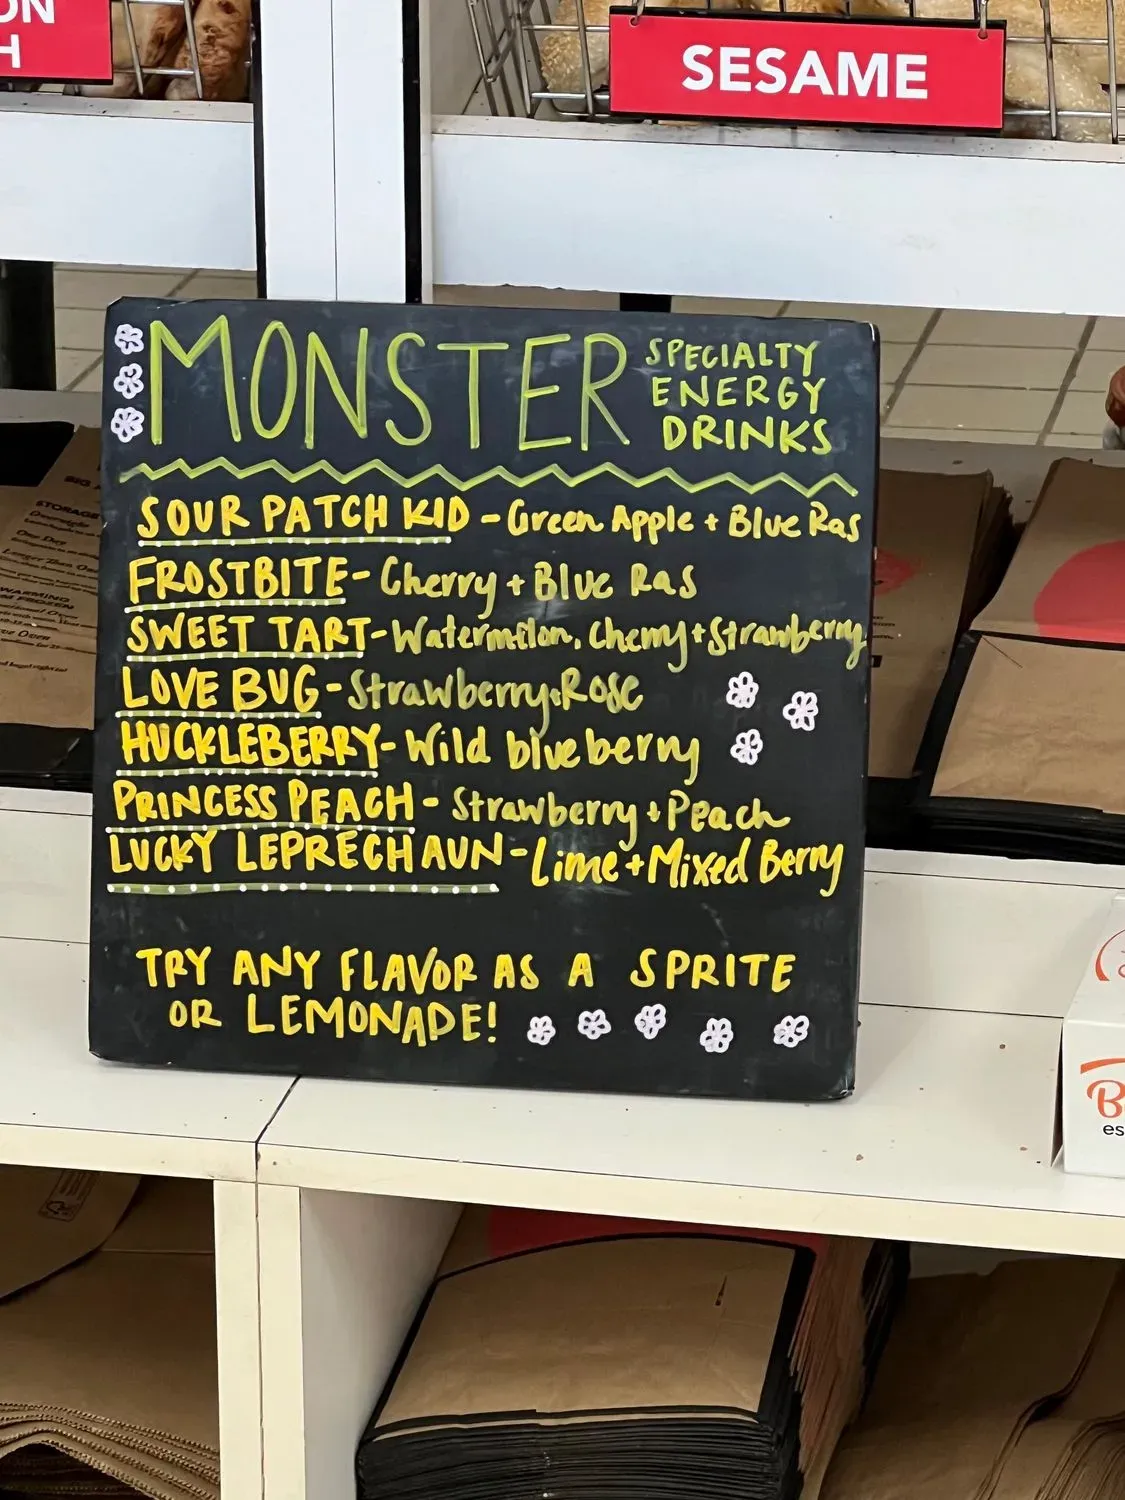 ON
H
SESAME
MONSTER SPECIALTY
ENERGY
DRINKS
SOUR PATCH KID - Green Apple + Blue Ras
FROSTBITE - Cherry + Blue Ras
SWEET TART - Watermelon, Cherry + Strawberry
LOVE BUG - Strawberry + Rose
HUCKLEBERRY - Wild blueberry
PRINCESS PEACH - Strawberry + Peach
LUCKY LEPRECHAUN - Lime + Mixed Berry
TRY ANY FLAVOR AS A SPRITE
OR LEMONADE!
STORAGE
One Day
WARMING
B
es